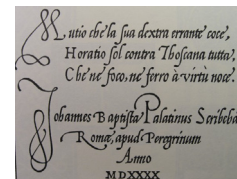 Mutio che la sua dextra errante coce,
Horatio sol contra Thoscana tutta,
Che ne foco, ne ferro à virtù noce.
Iohannes Baptista Palatinus Scribeba
Romæ, apud Peregrinum
Anno
MDXXXX